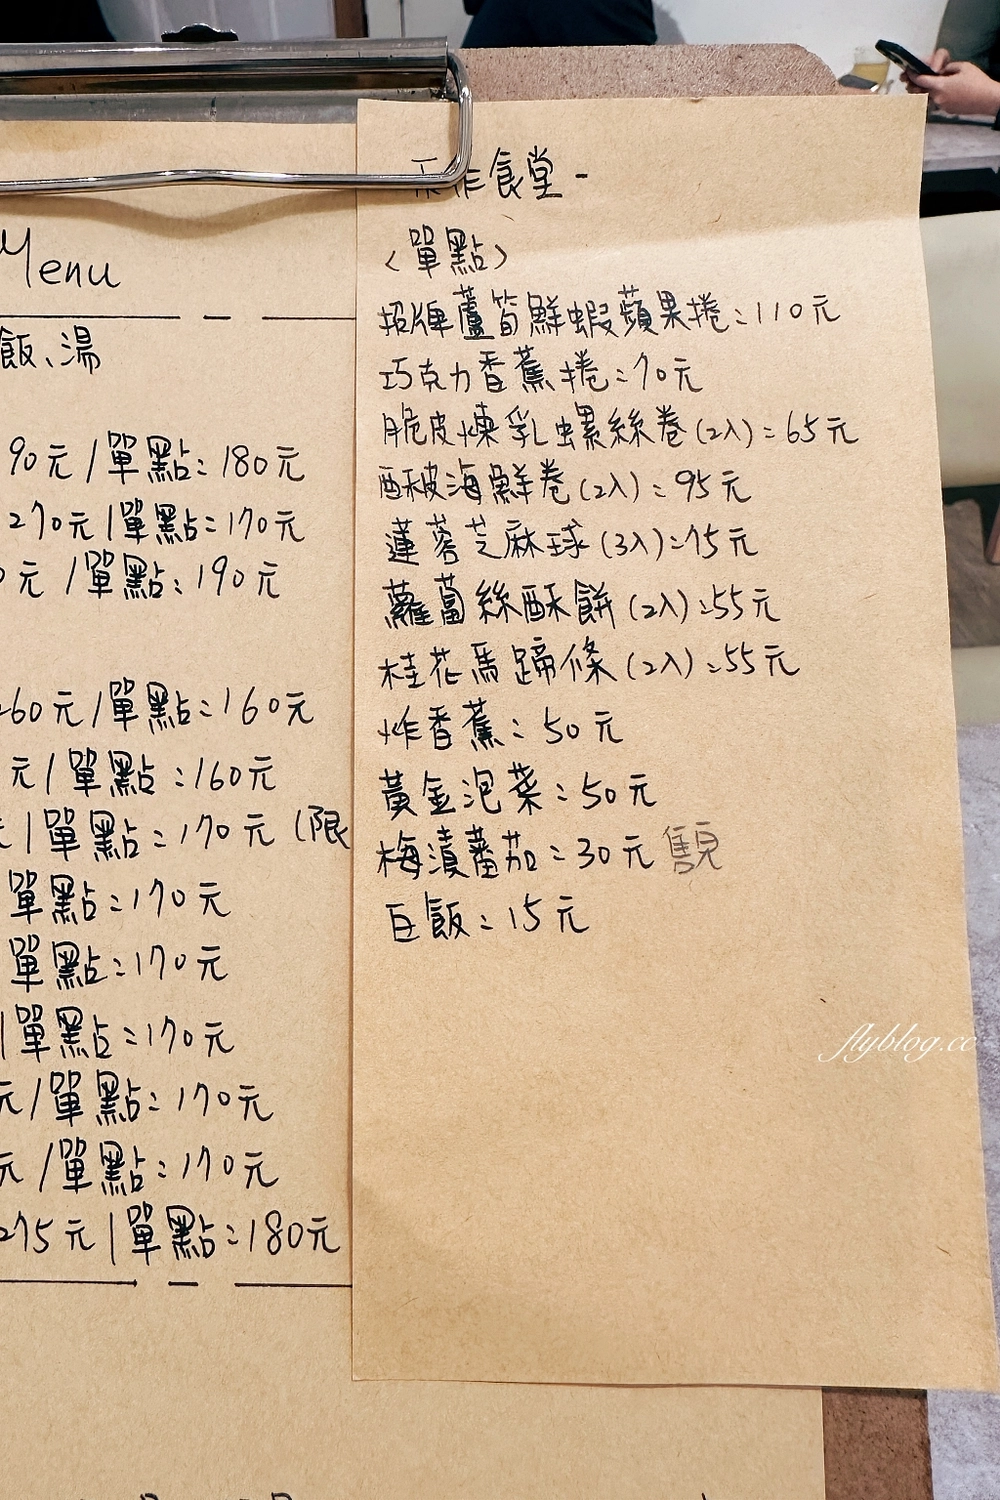 Menu
飯、湯
90元/單點:180元
270元/單點:170元
元/單點:190元
260元/單點:160元
元/單點:160元
元/單點:170元(限
單點:170元
單點:170元
/單點:170元
元/單點:170元
元/單點:170元
275元/單點:180元
禾作食堂-
<單點>
招牌蘆筍鮮蝦蘋果捲:110元
巧克力香蕉捲:70元
脆皮煉乳螺絲卷(2入):65元
酥皮海鮮卷(2入):95元
蓮蓉芝麻球(3入):75元
蘿蔔絲酥餅(2入):55元
桂花馬蹄條(2入):55元
炸香蕉:50元
黃金泡菜:50元
梅漬蕃茄:30元 售完
白飯:15元
flyblog.cc